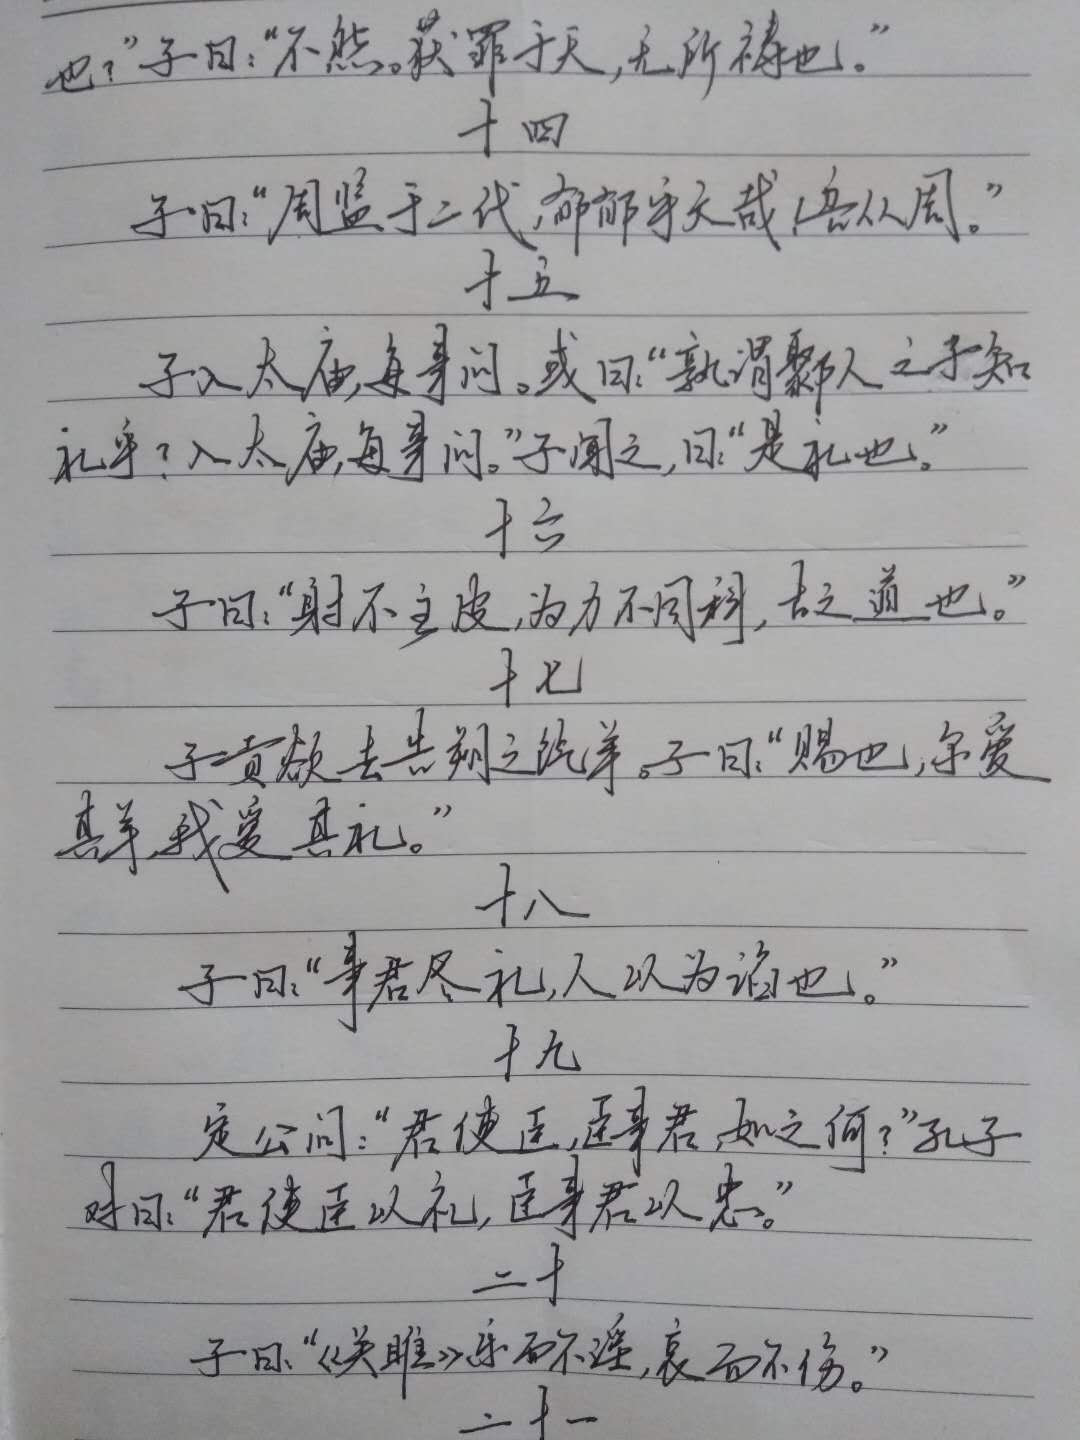 也？”子曰：“不然。获罪于天，无所祷也。”
十四
子曰：“周监于二代，郁郁乎文哉！吾从周。”
十五
子入太庙，每事问。或曰：“孰谓鄹人之子知
礼乎？入太庙，每事问。”子闻之，曰：“是礼也。”
十六
子曰：“射不主皮，为力不同科，古之道也。”
十七
子贡欲去告朔之饩羊。子曰：“赐也，尔爱
其羊，我爱其礼。”
十八
子曰：“事君尽礼，人以为谄也。”
十九
定公问：“君使臣，臣事君，如之何？”孔子
对曰：“君使臣以礼，臣事君以忠。”
二十
子曰：“《关雎》乐而不淫，哀而不伤。”
二十一